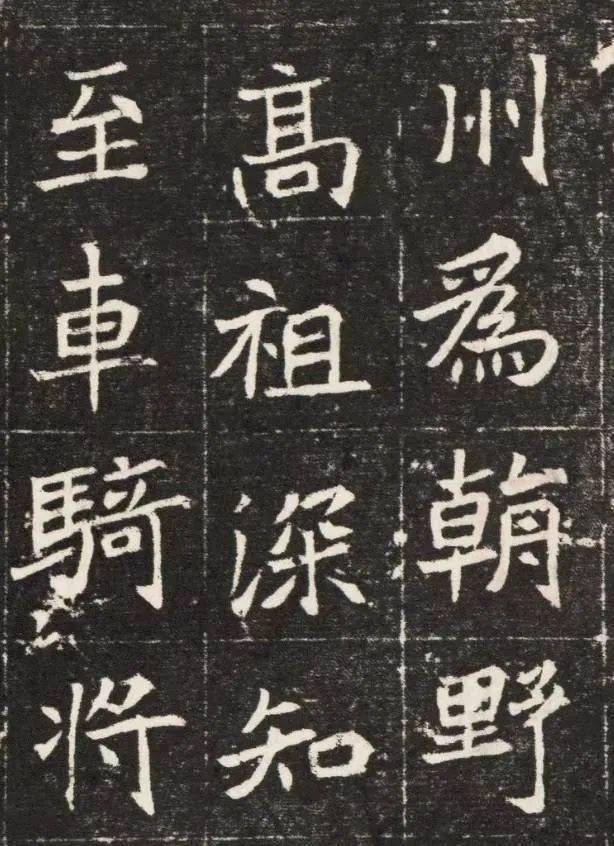 州爲朝野
高祖深知
至車騎將